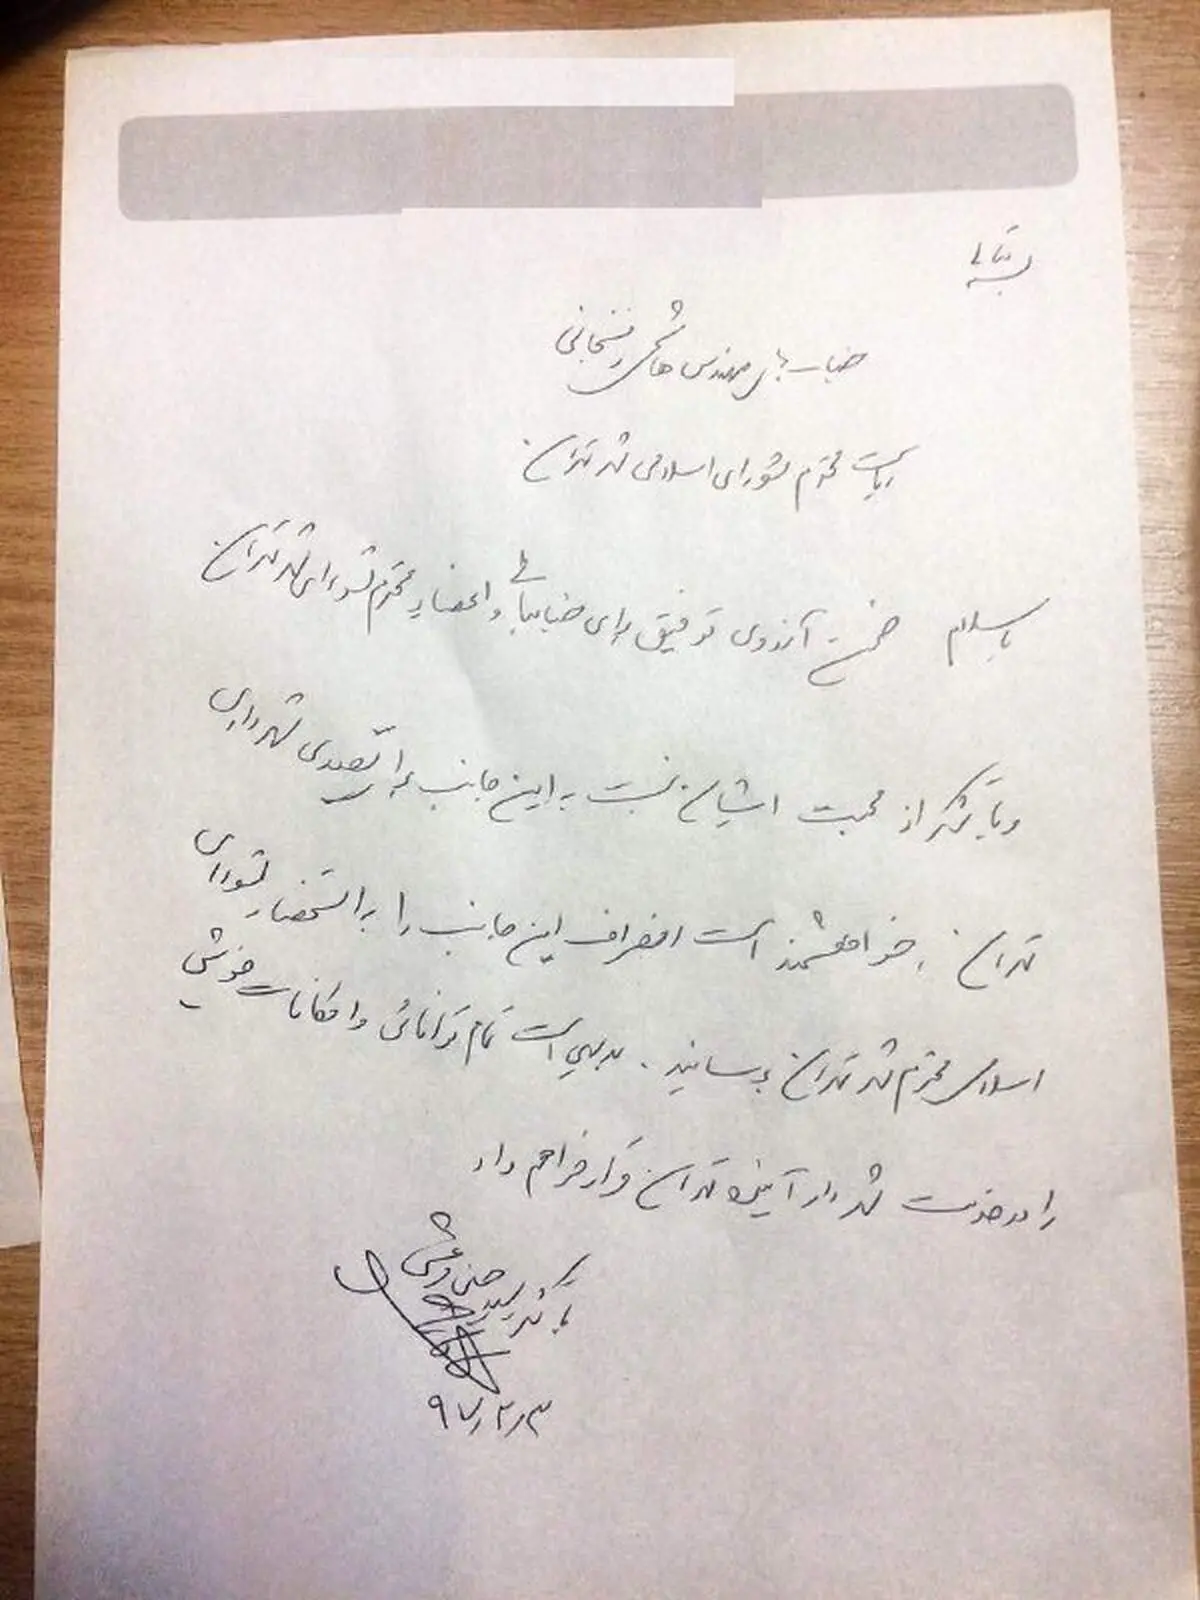 بسمه تعالی
جناب آقای مهندس هاشمی رفسنجانی
ریاست محترم شورای اسلامی شهر تهران
با سلام ضمن آرزوی توفیق برای جنابعالی و اعضای محترم شورای شهر تهران
و با تشکر از محبت ایشان نسبت به این جانب برای تصدی شهرداری
تهران، خواهشمند است انصراف این جانب را به استحضار شورای
اسلامی محترم شهر تهران برسانید. بدیهی است تمام توانائی و امکانات خویش
را در خدمت شهردار آینده تهران قرار خواهم داد
با تشکر سید
۹۷٫۲٫۳